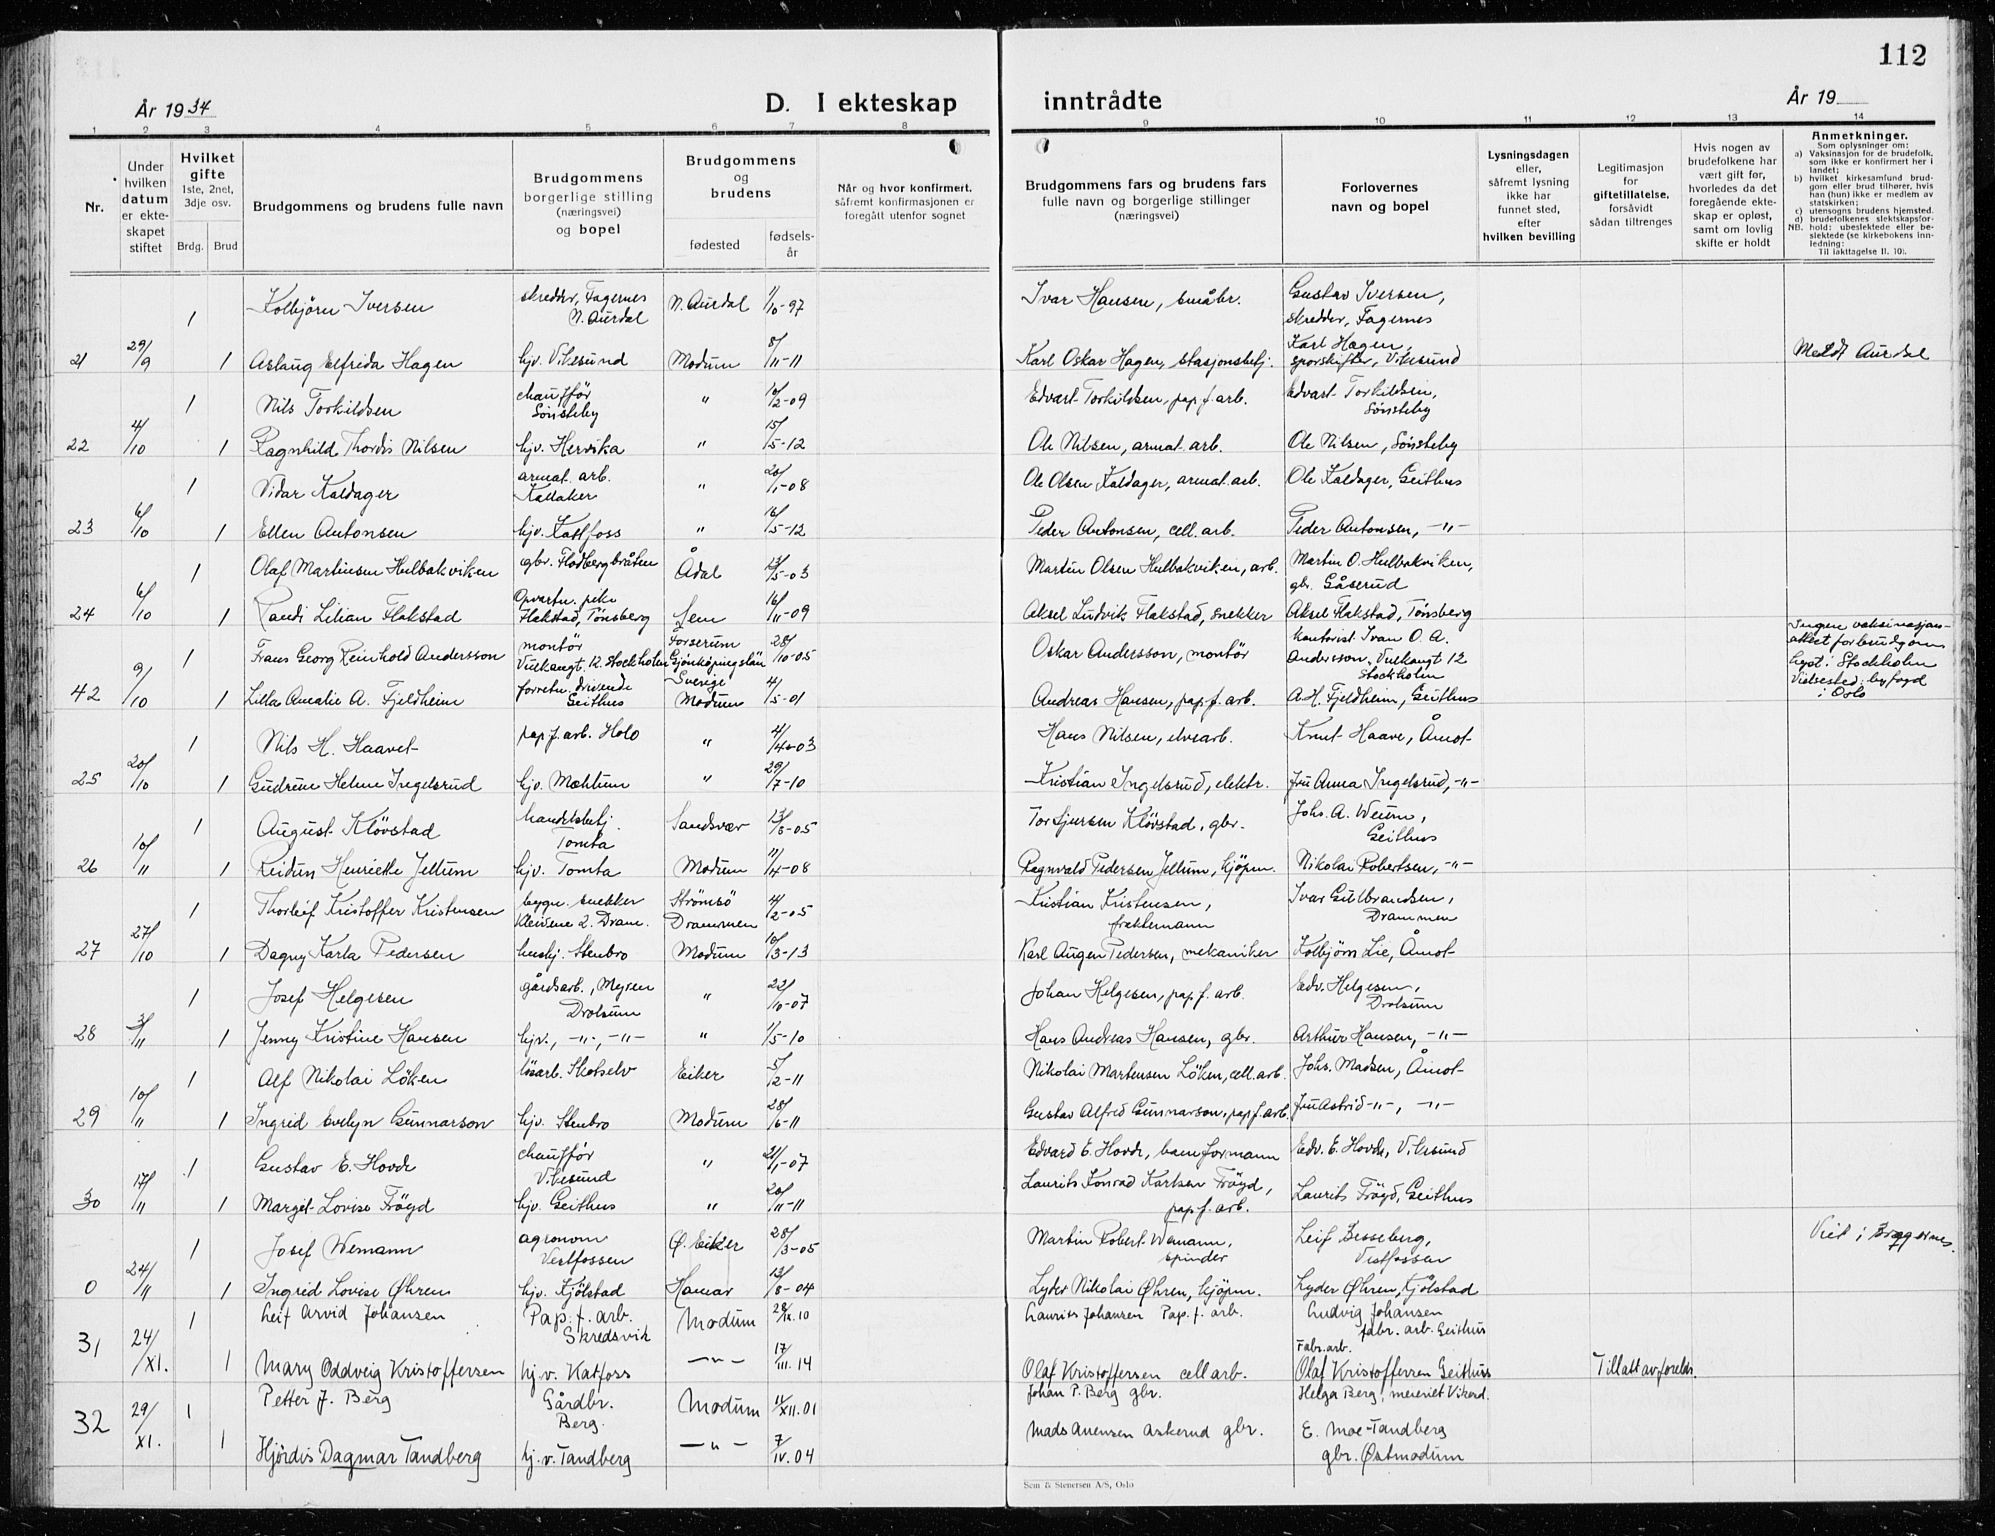 112
År 1934
D. I ekteskap inntrådte
År 19
1 2 3 4 5 6 7 8 9 10 11 12 13 14
Nr.
Under hvilken datum er ekteskapet stiftet
Hvilket gifte 1ste, 2net, 3dje osv.
Brdg. Brud
Brudgommens og brudens fulle navn
Brudgommens borgerlige stilling (næringsvei) og bopel
Brudgommens og brudens
fødested
fødselsår
Når og hvor konfirmert, såfremt konfirmasjonen er foregått utenfor sognet
Brudgommens fars og brudens fars fulle navn og borgerlige stillinger (næringsvei)
Forlovernes navn og bopel
Lysningsdagen eller, såfremt lysning ikke har funnet sted, efter hvilken bevilling
Legitimasjon for giftetillatelse, forsåvidt sådan tiltrenges
Hvis nogen av brudefolkene har vært gift før, hvorledes da det foregående ekteskap er opløst, samt om lovlig skifte er holdt
Anmerkninger.
Som oplysninger om:
a) Vaksinasjon for de brudefolk, som ikke er konfirmert her i landet;
b) hvilket kirkesamfund brudgom eller brud tilhører, hvis han (hun) ikke er medlem av statskirken;
c) utensogns brudens hjemsted.
d) brudefolkenes slektskapsforhold: ubeslektede eller beslektede (se kirkebokens innledning:
NB.
Til iakttagelse II. 10).
1 Kolbjörn Iversen skredder, Fagernes N. Aurdal N. Aurdal 1/10-97 Ivar Hansen, småbr. Gustav Iversen, skredder, Fagernes
21 29/9 1 Aslaug Elfrida Hagen hjv. Vikesund Modum 8/11-11 Karl Oskar Hagen, stasjonsbetj. Karl Hagen, sporskifter, Vikesund Meldt Aurdal
1 Nils Torkildsen chauffør Sönsteby " 10/2-09 Edvart Torkildsen, pap.f.arb. Edvart Torkildsen, Sönsteby
22 4/10 1 Ragnhild Thordis Nilsen hjv. Hervika " 15/5-12 Ole Nilsen, armat. arb. Ole Nilsen, Sönsteby
1 Vidar Kaldager armat. arb. Kallaker " 20/1-08 Ole Olsen Kaldager, armat. arb. Ole Kaldager, Geithus
23 6/10 1 Ellen Antonsen hjv. Katfoss " 16/5-12 Peder Antonsen, cell. arb. Peder Antonsen, -"-
1 Olaf Martinsen Hulbakviken gbr. Flodbergbråten Ådal 13/5-03 Martin Olsen Hulbakviken, arb. Martin O. Hulbakviken, gbr. Gåserud
24 6/10 1 Randi Lilian Flakstad Opvartn. pike Flakstad, Tönsberg Sem 16/11-09 Aksel Ludvik Flakstad, snekker Aksel Flakstad, Tönsberg
1 Frans Georg Reinhold Andersson montör Vulkangt. 12. Stockholm Forserum Gjönköpingslän Sverige 28/10-05 Oskar Andersson, montör Kontorist Ivan O. A. Andersson, Vulkangt 12 Stockholm Ingen vaksinasjonsattest for brudgom. lyst i Stockholm Vielsested: byfogd i Oslo
42 9/10 1 Lilla Amalie A. Fjeldheim forretn. drivende Geithus Modum 4/5-01 Andreas Hansen, pap.f. arb. A. H. Fjeldheim, Geithus
1 Nils H. Haavet pap.f. arb. Holo " 4/4-03 Hans Nilsen, elvearb. Knut Haave, Åmot
25 20/10 1 Gudrun Helene Ingelsrud hjv. Mæhlum " 29/7-10 Kristian Ingelsrud, elektr. Fru Anna Ingelsrud, -"-
1 August Klövstad handelsbetj. Tomta Sandsvær 13/8-05 Tor Ljursen Klövstad, gbr. Johs. A. Weum, Geithus
26 10/11 1 Reidun Henriette Jellum hjv. Tomta Modum 11/4-08 Ragnvald Pedersen Jellum, kjöpm. Nikolai Robertsen, -"-
1 Thorleif Kristoffer Kristensen bygn. snekker Kleivene 2. Dram. Strömsö Drammen 4/2-05 Kristian Kristensen, fraktemann Ivar Gulbrandsen, Drammen
27 27/10 1 Dagny Karla Pedersen hushj. Stenbro Modum 10/3-13 Karl Augen Pedersen, mekaniker Kolbjörn Lie, Åmot
1 Josef Helgesen gårdsarb., Myren Drolsum " 22/10-07 Johan Helgesen, pap.f. arb. Edv. Helgesen, Drolsum
28 3/11 1 Jenny Kristine Hansen hjv., -"-, -"- " 1/5-10 Hans Andreas Hansen, gbr. Arthur Hansen, -"-
1 Alf Nikolai Löken lösarb. Skotselv Eiker 5/2-11 Nikolai Martensen Löken, cell. arb. Johs. Madsen, Åmot
29 10/11 1 Ingrid Evelyn Gunnarson hjv. Stenbro Modum 28/6-11 Gustav Alfred Gunnarson, pap.f. arb. Fru Astrid -"-, -"-
1 Gustav E. Hovde chauffør Vikesund " 21/1-07 Edvard E. Hovde, baneformann Edv. E. Hovde, Vikesund
30 17/11 1 Margit Lovise Fröyd hjv. Geithus " 20/11-11 Laurits Konrad Karlsen Fröyd, pap.f. arb. Laurits Fröyd, Geithus
1 Josef Wemann agronom Vestfossen Ø. Eiker 28/3-05 Martin Robert Wemann, spinder Leif Besseberg, Vestfossen Viet i Bragernes.
0 24/11 1 Ingrid Lovise Øhren hjv. Kjölstad Hamar 13/8-04 Lyder Nikolai Øhren, kjöpm. Lyder Øhren, Kjölstad
31 24/XI. 1 Leif Arvid Johansen Pap.f. arb. Skredsvik Modum 28/IX.10 Laurits Johansen Pap.f. arb. Ludvig Johansen fabr. arb. Geithus
1 Mary Oddveig Kristoffersen hj.v. Katfoss -"- 17/III.14 Olaf Kristoffersen cell arb. Fabr. arb. Olaf Kristoffersen Geithus Tillatt av foreldr.
32 29/XI. 1 Petter J. Berg Gårdbr. Berg. Modum 11/XII.01 Johan P. Berg gbr. Helga Berg, meieriet Vikersd.
1 Hjördis Dagmar Tandberg hj.v. Tandberg -"- 7/IV.04 Mads Anensen Askerud gbr. E. Moe-Tandberg gbr. Østmodum
Sem & Stenersen A/S, Oslo